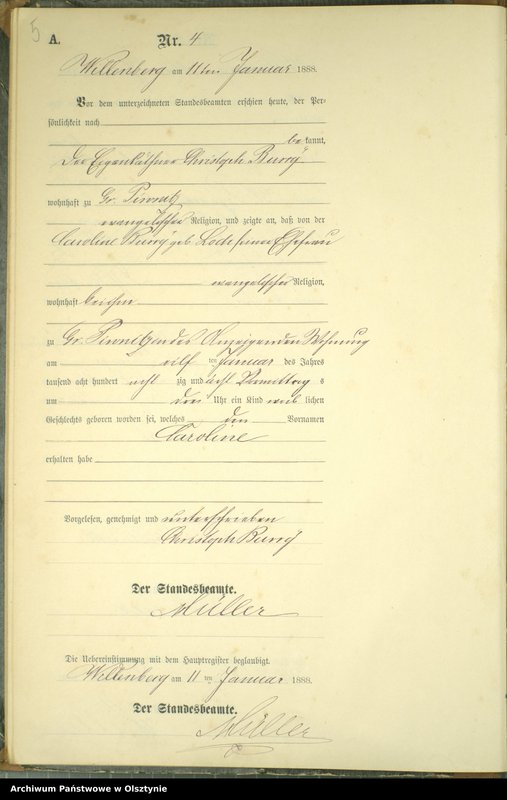 5
A.
Nr. 4
Willenberg am 11ten Januar 1888.
Vor dem unterzeichneten Standesbeamten erschien heute, der Per-
sönlichkeit nach
be kannt,
Der Eigenkäthner Christoph
wohnhaft zu Gr. Piwnitz
evangelischer Religion, und zeigte an, daß von der
Caroline geb. seiner Ehefrau
evangelischer Religion,
wohnhaft bei ihm
zu Gr. Piwnitz in des Anzeigenden Wohnung
am elf ten Januar des Jahres
tausend acht hundert acht zig und acht Vormittag s
um drei Uhr ein Kind weib lichen
Geschlechts geboren worden sei, welches den Vornamen
Caroline
erhalten habe
Vorgelesen, genehmigt und unterschrieben
Christoph
Der Standesbeamte.
Müller
Die Uebereinstimmung mit dem Hauptregister beglaubigt.
Willenberg am 11 ten Januar 1888.
Der Standesbeamte.
Müller
Archiwum Państwowe w Olsztynie